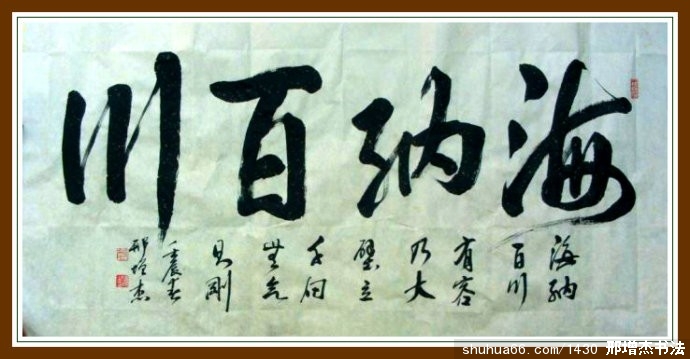 海纳百川
海纳
百川
有容
乃大
壁立
千仞
無欲
則剛
壬辰春
邢增杰
shuhua66.com/1430 邢增杰书法